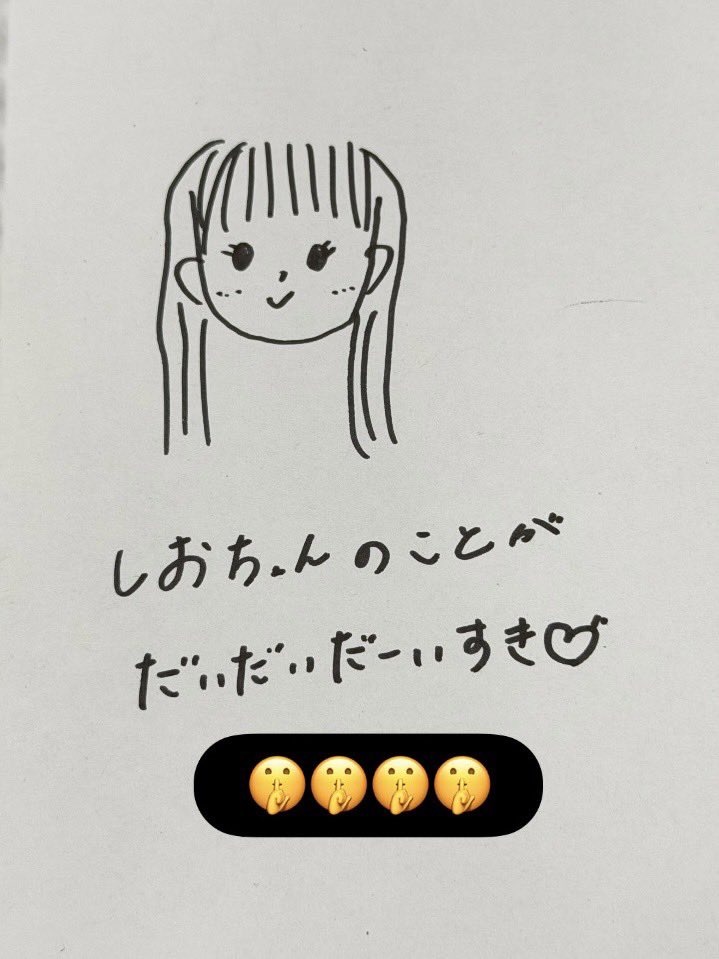 しおちゃんのことが
だいだいだーいすき♡
🤫🤫🤫🤫